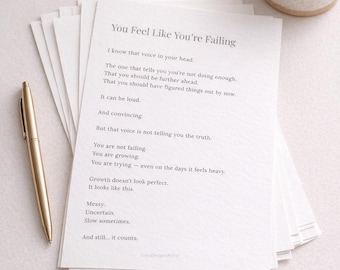 You Feel Like You're Failing
I know that voice in your head.
The one that tells you you're not doing enough.
That you should be further ahead.
That you should have figured things out by now.
It can be loud.
And convincing.
But that voice is not telling you the truth.
You are not failing.
You are growing.
You are trying — even on the days it feels heavy.
Growth doesn't look perfect.
It looks like this.
Messy.
Uncertain.
Slow sometimes.
And still... it counts.